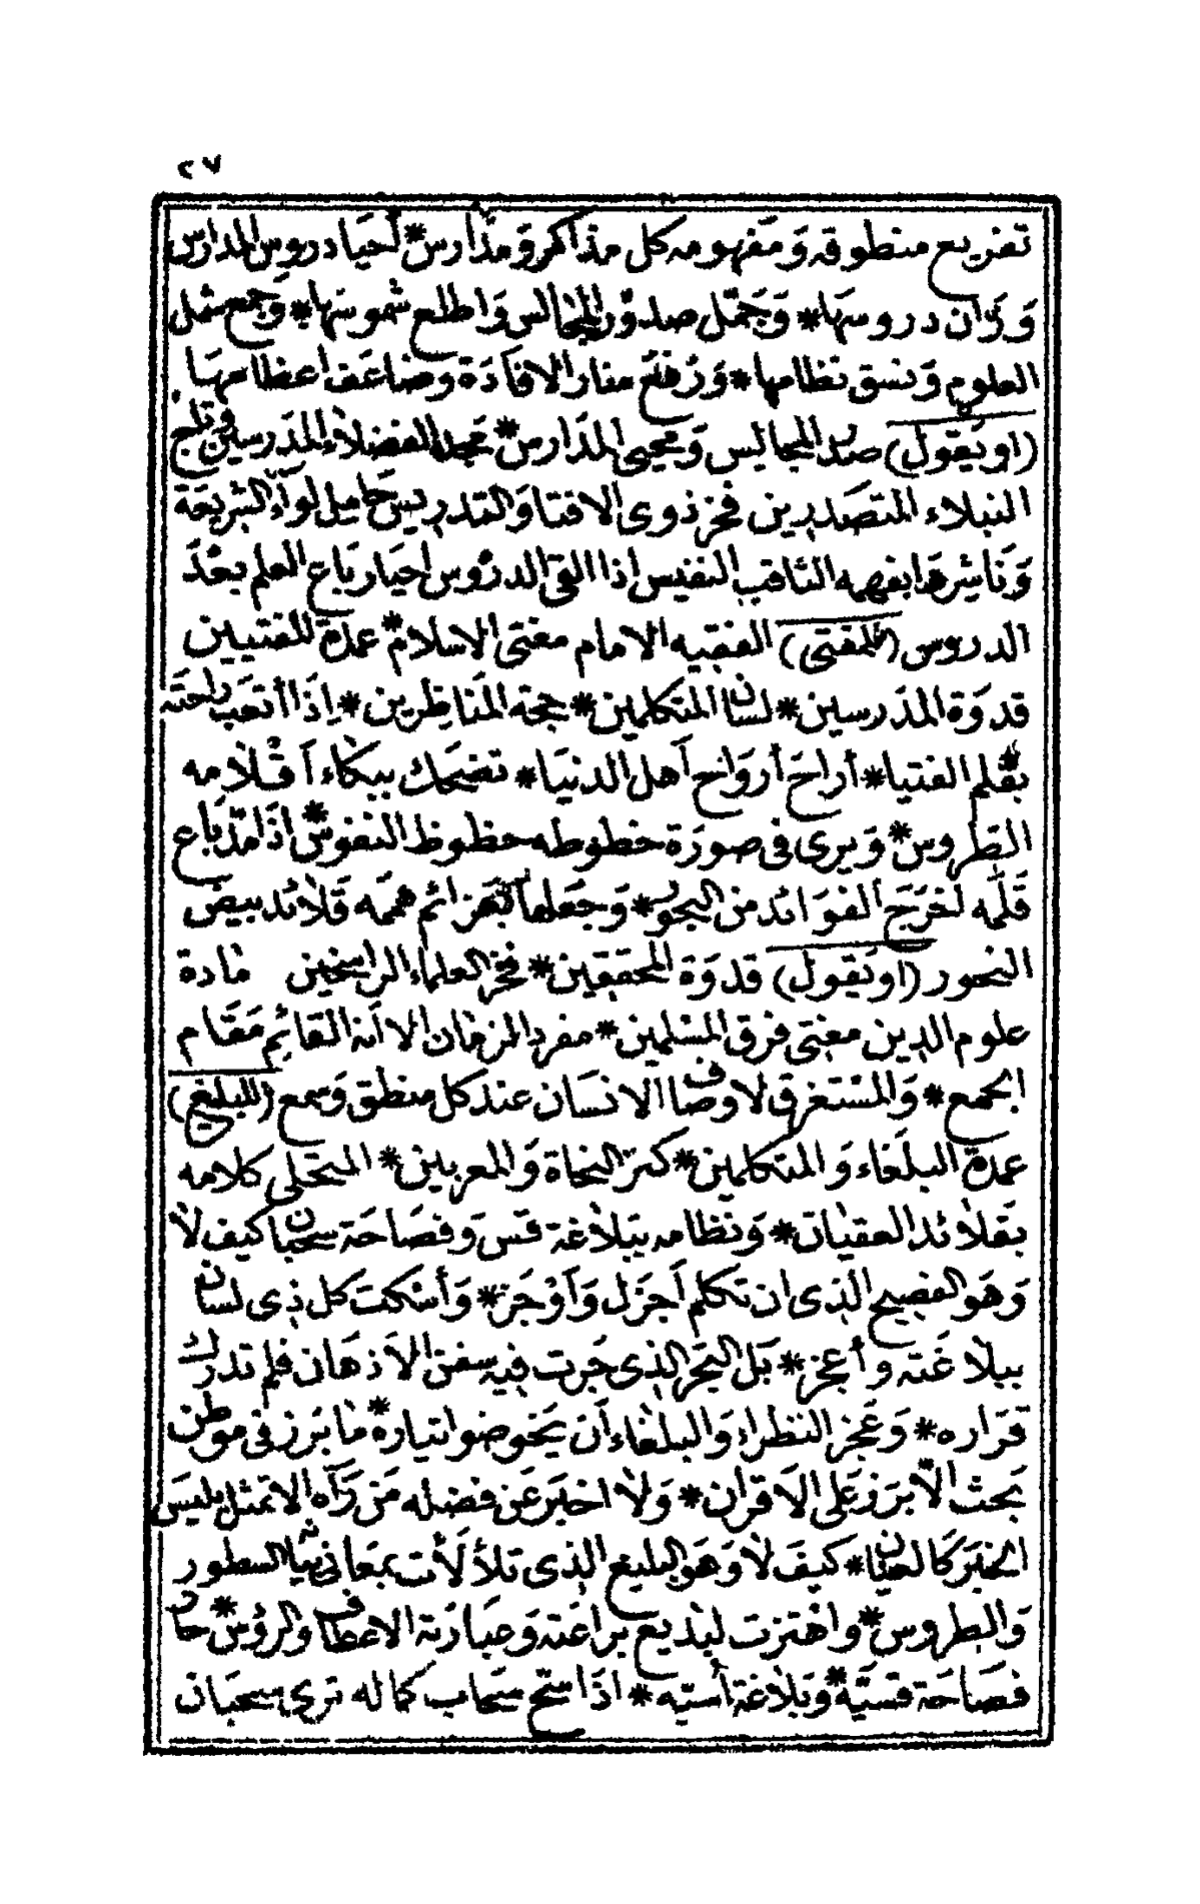 ٢٧
تفريع منطوقه وَمَفهومه كل مذاكر وَمدَارس * أحيَا دروس المدارس
وَزان دروسهَا * وَجَمّل صدوُر المجَالس وَاطلع شموسَها * وَجمع شمل
العلوم وَنسق نظامها * وَرفعَ منار الافادَة وضاعَف اعظامهَا
(اويُقول) صدر المجاليس وَمحيى المدَارس * عمدة الفضلاء المدَرسين وتاج
النبلاء المتصَدرين فخر ذوى الافتا وَالتدريس حَاميل لوآء الشريعَة
وَنَاشرهَا بفهمه الثاقب النفيس اذا القى الدروُس احيَا ربَاع العلم بعْدَ
الدروس (للمفتى) الفقيه الامام مفتى الاسلام * عمدة المفتيين
قدوَة المدَرسين * لسان المتكلمين * حجة المنَاظرين * اِذَا أتحَب راحتَه
بقَلم الفتيا * أراحَ أروَاح أهل الدنيَا * تضحَك ببكاء أقْلامه
الطروس * وَيرى فى صورَة خطوطه حظوظ النفوس * اذَا مدّ بَاع
قَلَمه أخرَجَ الفوَائد من البحور * وَجعَلها بعَزائم هممَه قَلائد بيض
النحور (اويَقول) قدوَة المحققين * فخر العلماء الراسخين مادة
علوم الدين مفتى فرق المسْلمين * مفرد الزمان الا أنه القائِم مَقَام
الجمع * وَالمسْتغرق لاوصَاف الانسَان عند كل منطق وَسمع (للبليغ)
عمدة البلَغاء وَالمتكلمين * كنز النحاة وَالمعربين * المتحلى كلامه
بقَلائد العقيان * وَنظامه ببَلاغة قسّ وفصَاحَة سحبَان كيف لا
وَهَو الفصيح الذى ان تكلم أجزَل وَأوْجَز * وَأسْكت كل ذى لسان
ببلاغَته وأعجز * بَل البَحَر الذى جَرت فيه سفن الاَذهَان فلم تدرك
قَراره * وَعَجز النظراء وَالبلغاء أن يَخوضوا تياره * مَا بَرز فى موطن
بَحث الاّ بَرزعَلى الاَقران * وَلا اخبَرعَن فضله مَن رَآه الا تمثل بليسَ
الخبَر كالعيَان * كيفَ لا وَهَو البليغ الذى تلأ لأت بمَعانى بيَان السطور
وَالطروس * واهْتزت لبَديع براعَته وَعبَارَته الاعطاف والرؤس * حَاز
فصَاحَة قسيّة * وَبلاغة أسيّه * اذَا سَحّ سَحَاب كماله ترى سحبَان